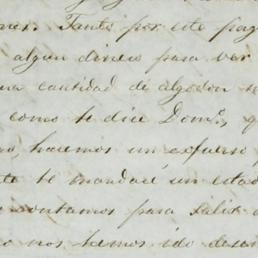 Tanto por este pag
algun dinero para ver
na cantidad de algodon
como te dice Dom.º, q
o, hacemos un esfuerso
te te mandaré un estad
contamos para salir
o nos hemos ido desen